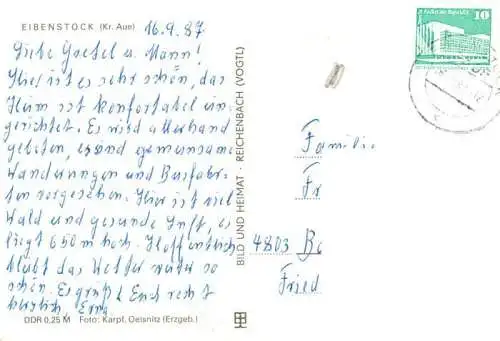 EIBENSTOCK (Kr. Aue)
16.9.87
Liebe Gretel u. Mann!
Hier ist es sehr schön, das
Heim ist konfortabel ein-
gerichtet. Es wird allerhand
geboten, es sind gemeinsame
Wanderungen und Busfahr-
ten vorgesehen. Hier ist viel
Wald und gesunde Luft, es
liegt 650 m hoch. Hoffentlich
bleibt das Wetter weiter so
schön. Es grüßt Euch recht
herzlich, Erna
DDR 0,25 M Foto: Karpf, Oelsnitz (Erzgeb.)
BILD UND HEIMAT · REICHENBACH (VOGTL)
10
Familie
Fr
4803 B
Fried